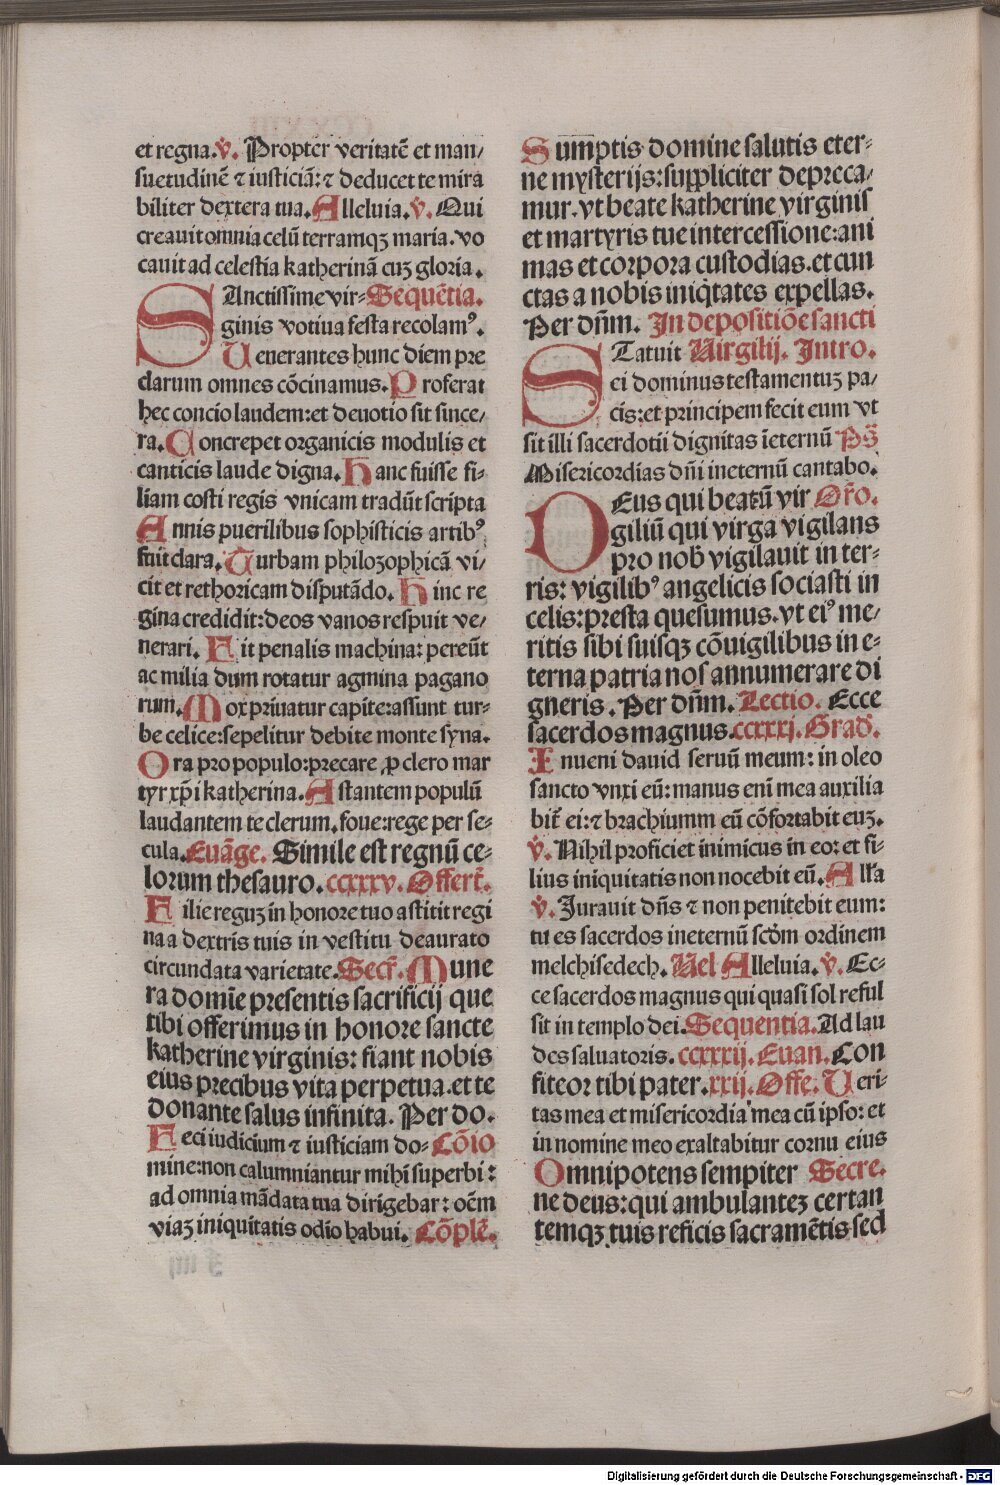 et regna. v̊. Propter veritatē et man/
suetudinē ⁊ iusticiā: ⁊ deducet te mira
biliter dextera tua. Alleluia. v̊. Qui
creauit omnia celū terramqꝫ maria. vo
cauit ad celestia katherinā cuꝫ gloria.
SAnctissime vir- Sequētia.
ginis votiua festa recolamꝰ.
Uenerantes hunc diem pre
clarum omnes cōcinamus. Proferat
hec concio laudem: et deuotio sit since/
ra. Concrepet organicis modulis et
canticis laude digna. Hanc fuisse fi-
liam costi regis vnicam tradūt scripta
Annis puerilibus sophisticis artibꝰ
fuit clara. Turbam philozophicā vi/
cit et rethoricam disputādo. Hinc re
gina credidit: deos vanos respuit ve/
nerari. Fit penalis machina: pereūt
ac milia dum rotatur agmina pagano
rum. Mox priuatur capite: assunt tur-
be celice: sepelitur debite monte syna.
Ora pro populo: precare ꝓ clero mar
tyr xp̄i katherina. Astantem populū
laudantem te clerum. foue: rege per se-
cula. Euāge. Simile est regnū ce-
lorum thesauro. ccxxxv. Offert̄.
Filie reguꝫ in honore tuo astitit regi
na a dextris tuis in vestitu deaurato
circundata varietate. Secr̄. Mune
ra domīe presentis sacrificij que
tibi offerimus in honore sancte
katherine virginis: fiant nobis
eius precibus vita perpetua. et te
donante salus infinita. Per do.
Feci iudicium ⁊ iusticiam do- Cōio
mine: non calumniantur mihi superbi:
ad omnia mādata tua dirigebar: oēm
viaꝫ iniquitatis odio habui. Cōplē.
Sumptis domine salutis eter-
ne mysterijs: suppliciter depreca/
mur. vt beate katherine virginis
et martyris tue intercessione: ani
mas et corpora custodias. et cun
ctas a nobis iniq̇tates expellas.
Per dn̄m. In depositiōe sancti
STatuit Virgilij. Intro.
ei dominus testamentuꝫ pa/
cis: et principem fecit eum vt
sit illi sacerdotii dignitas īeternū Ps̄
Misericordias dn̄i ineternū cantabo.
DEus qui beatū vir Or̄o.
giliū qui virga vigilans
pro nob̄ vigilauit in ter-
ris: vigilibꝰ angelicis sociasti in
celis: presta quesumus. vt eiꝰ me/
ritis sibi suisqꝫ cōuigilibus in e-
terna patria nos annumerare di
gneris. Per dn̄m. Lectio. Ecce
sacerdos magnus. ccxxxj. Grad̄.
Inueni dauid seruū meum: in oleo
sancto vnxi eū: manus eni mea auxilia
bit̄ ei: ⁊ brachiumm eū cōfortabit euꝫ.
v̊. Nihil proficiet inimicus in eo: et fi-
lius iniquitatis non nocebit eū. All̄a
v̊. Jurauit dn̄s ⁊ non penitebit eum:
tu es sacerdos ineternū scd̄m ordinem
melchisedech. Vel Alleluia. v̊. Ec-
ce sacerdos magnus qui quasi sol reful
sit in templo dei. Sequentia. Ad lau
des saluatoris. ccxxxij. Euan. Con
fiteor tibi pater. xxij. Offe. Veri-
tas mea et misericordia mea cū ipso: et
in nomine meo exaltabitur cornu eius
Omnipotens sempiter Secre.
ne deus: qui ambulanteꝫ certan
temqꝫ tuis reficis sacramētis sed
Digitalisierung gefördert durch die Deutsche Forschungsgemeinschaft - DFG